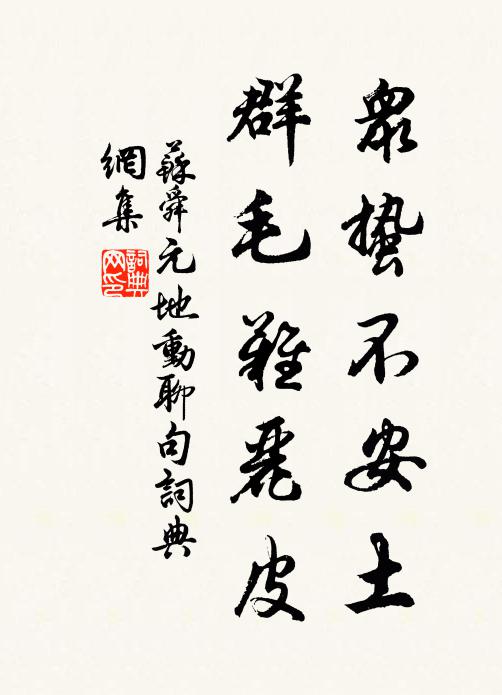 眾蟄不安土
群毛難麗皮
蘇舜元地動聊句詞典
網集
詞典
网印